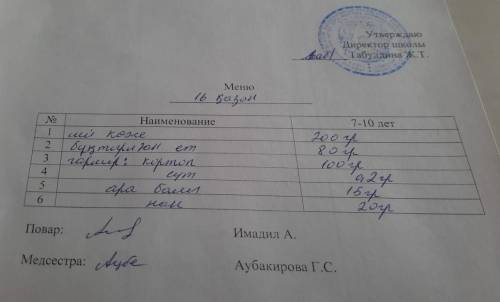 Утверждаю
Директор школы
Габуллина Ж.Т.
Меню
16 қазан
№ Наименование 7-10 лет
1 көже 200гр
2 бұқтырылған ет 80гр
3 гарнир: картоп 100гр
4 сүт 42гр
5 ара балы 15гр
6 нан 20гр
Повар: Имадил А.
Медсестра: Аубакирова Г.С.